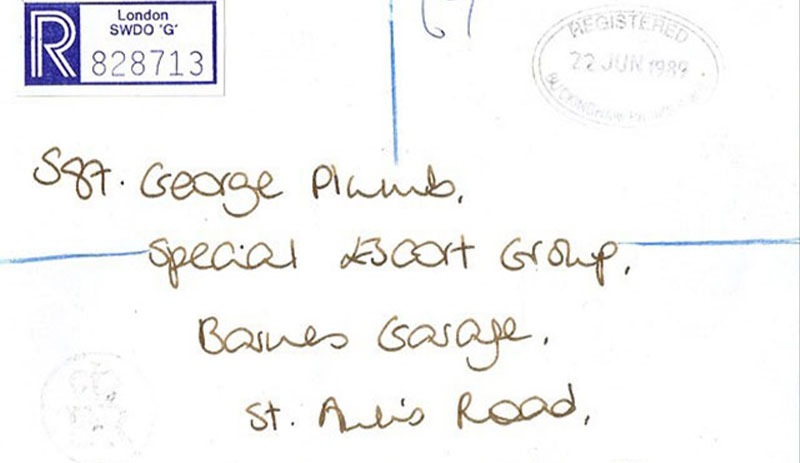 London
SWDO 'G'
R 828713
REGISTERED
22 JUN 1989
BUCKINGHAM
Sgt. George Plumb,
Special Escort Group,
Barnes Garage,
St. Ann's Road,